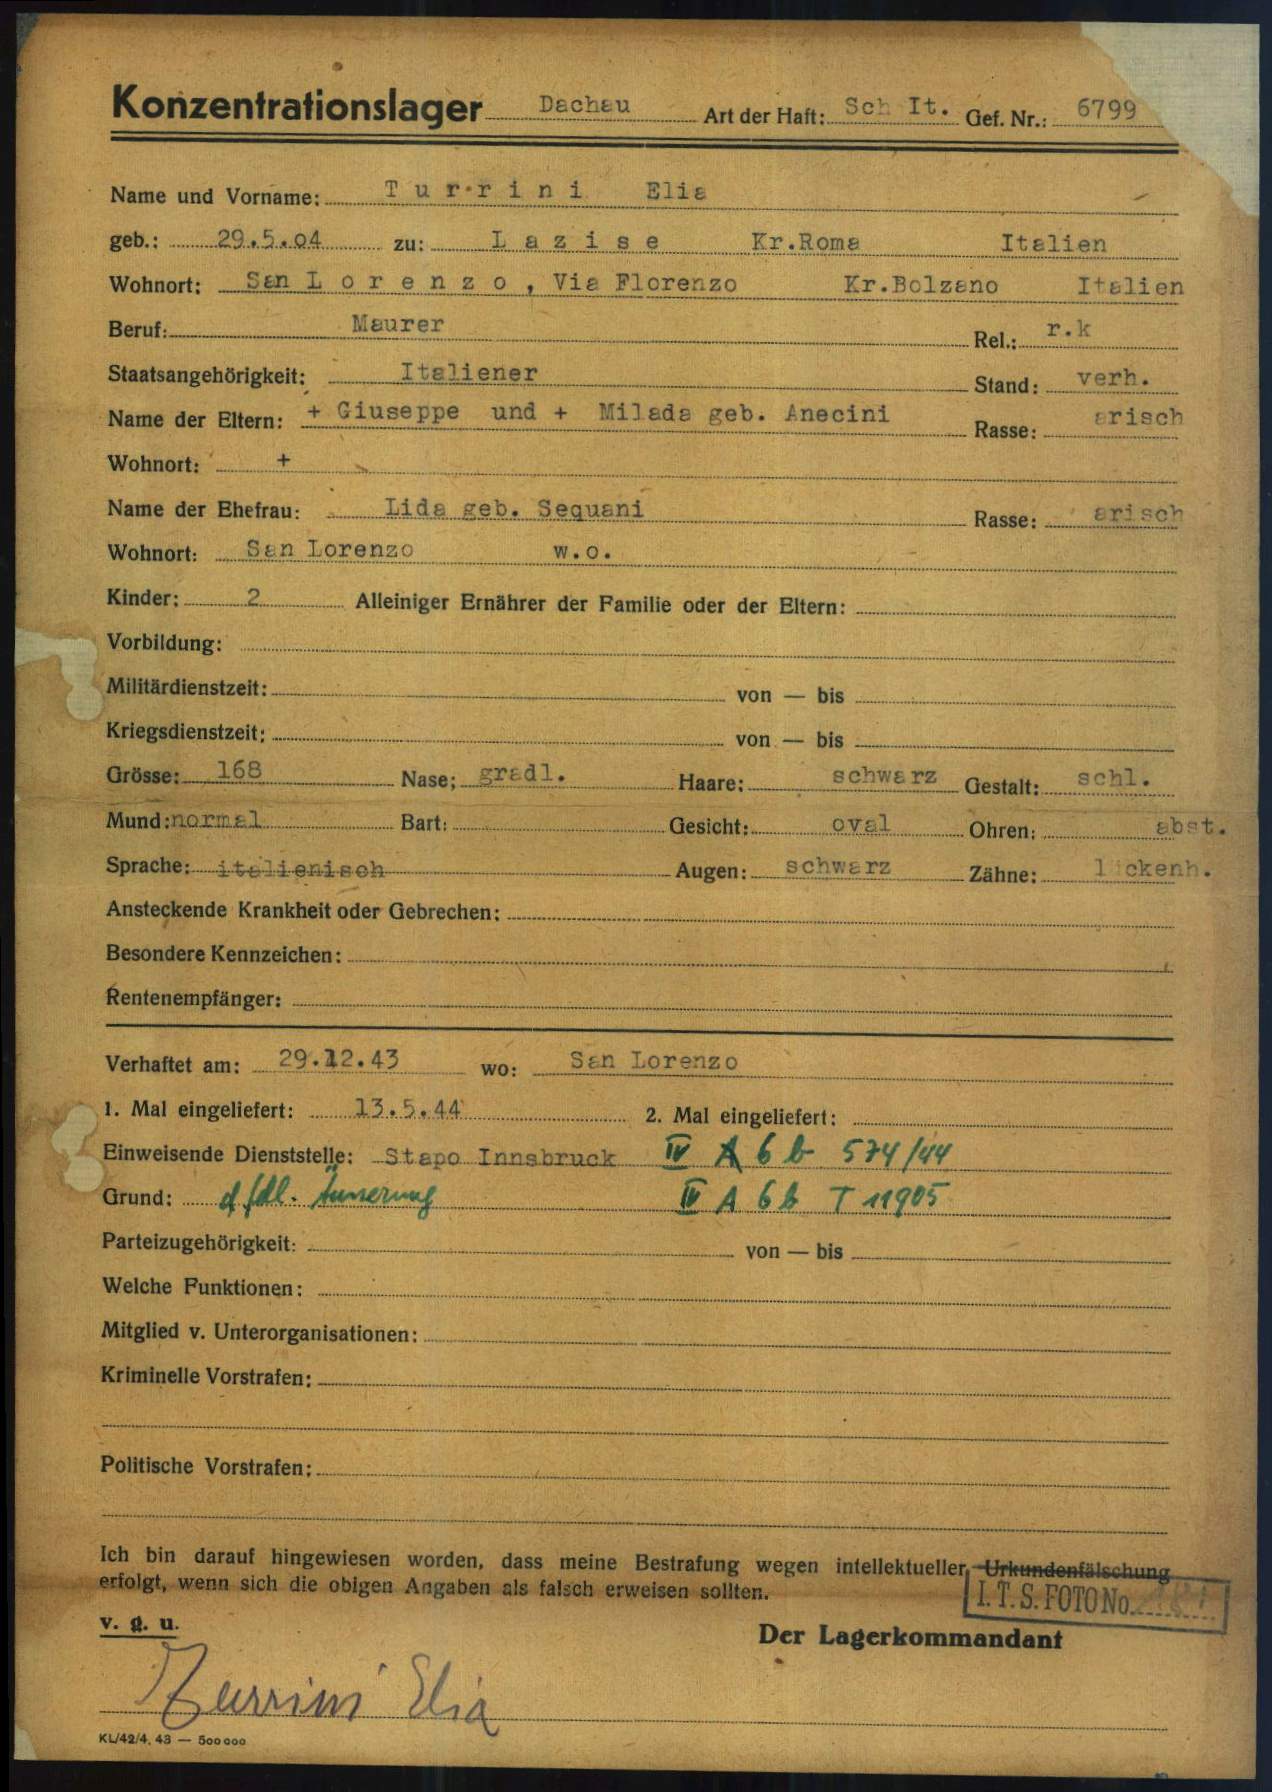 Konzentrationslager Dachau Art der Haft: Sch It. Gef. Nr.: 6799
Name und Vorname: Turrini Elia
geb.: 29.5.04 zu: Lazise Kr.Roma Italien
Wohnort: San Lorenzo, Via Florenzo Kr.Bolzano Italien
Beruf: Maurer Rel.: r.k
Staatsangehörigkeit: Italiener Stand: verh.
Name der Eltern: + Giuseppe und + Milada geb. Anecini Rasse: arisch
Wohnort: +
Name der Ehefrau: Lida geb. Sequani Rasse: arisch
Wohnort: San Lorenzo w.o.
Kinder: 2 Alleiniger Ernährer der Familie oder der Eltern:
Vorbildung:
Militärdienstzeit: von — bis
Kriegsdienstzeit: von — bis
Grösse: 168 Nase: gradl. Haare: schwarz Gestalt: schl.
Mund: normal Bart: Gesicht: oval Ohren: abst.
Sprache: italienisch Augen: schwarz Zähne: lückenh.
Ansteckende Krankheit oder Gebrechen:
Besondere Kennzeichen:
Rentenempfänger:
Verhaftet am: 29.12.43 wo: San Lorenzo
1. Mal eingeliefert: 13.5.44 2. Mal eingeliefert:
Einweisende Dienststelle: Stapo Innsbruck IV A 6 b 574/44
Grund: Äusserung IV A 6 b T 11905
Parteizugehörigkeit: von — bis
Welche Funktionen:
Mitglied v. Unterorganisationen:
Kriminelle Vorstrafen:
Politische Vorstrafen:
Ich bin darauf hingewiesen worden, dass meine Bestrafung wegen intellektueller Urkundenfälschung
erfolgt, wenn sich die obigen Angaben als falsch erweisen sollten.
I.T.S. FOTO No.
v. g. u.
Der Lagerkommandant
Turrini Elia
KL/42/4. 43 — 500000